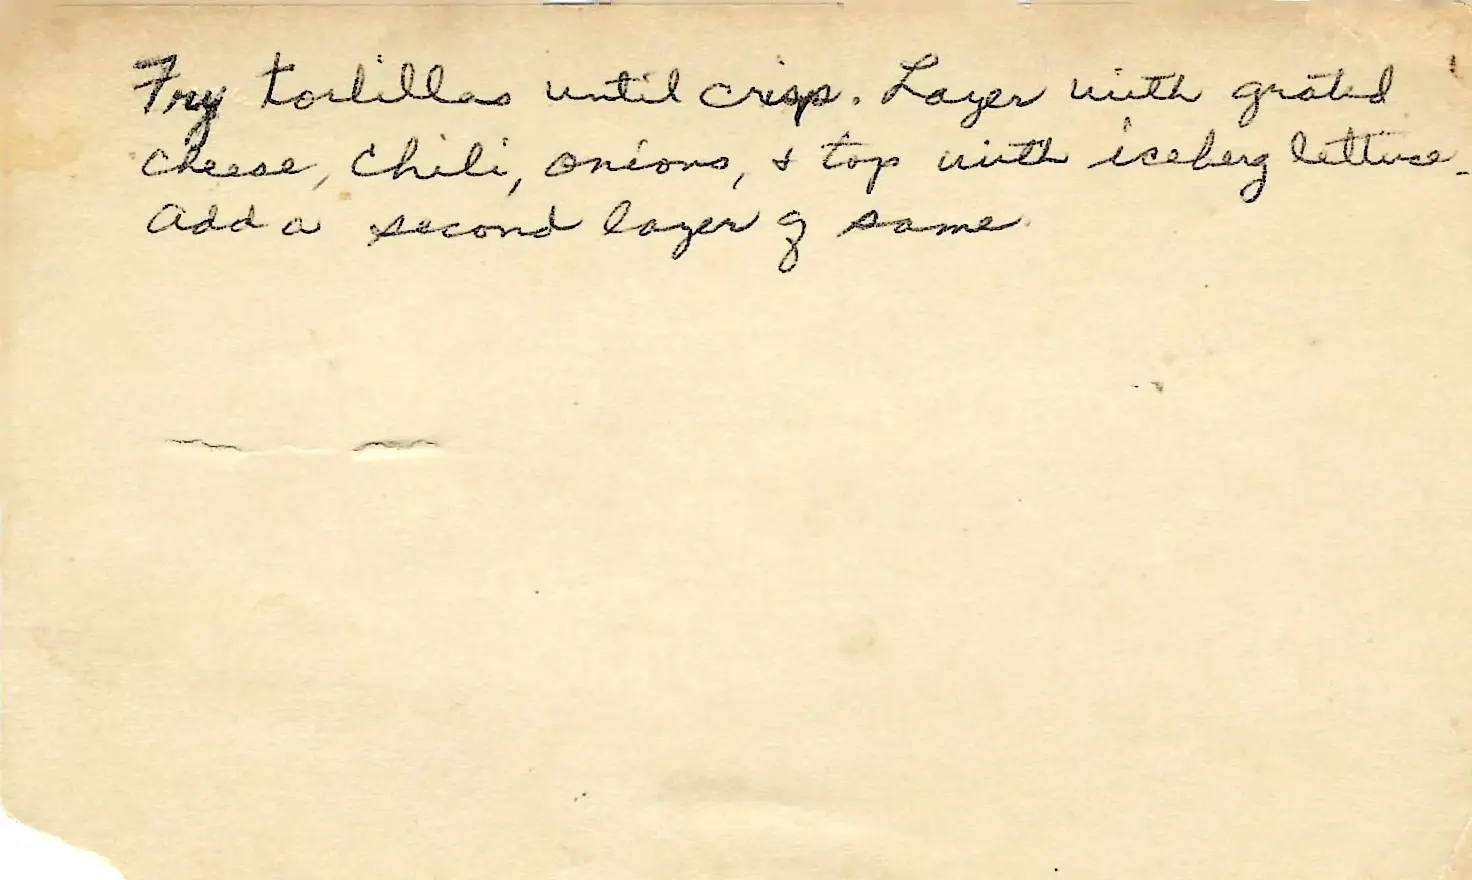 Fry tortillas until crisp. Layer with grated
cheese, chili, onions, & top with iceberg lettuce.
Add a second layer of same